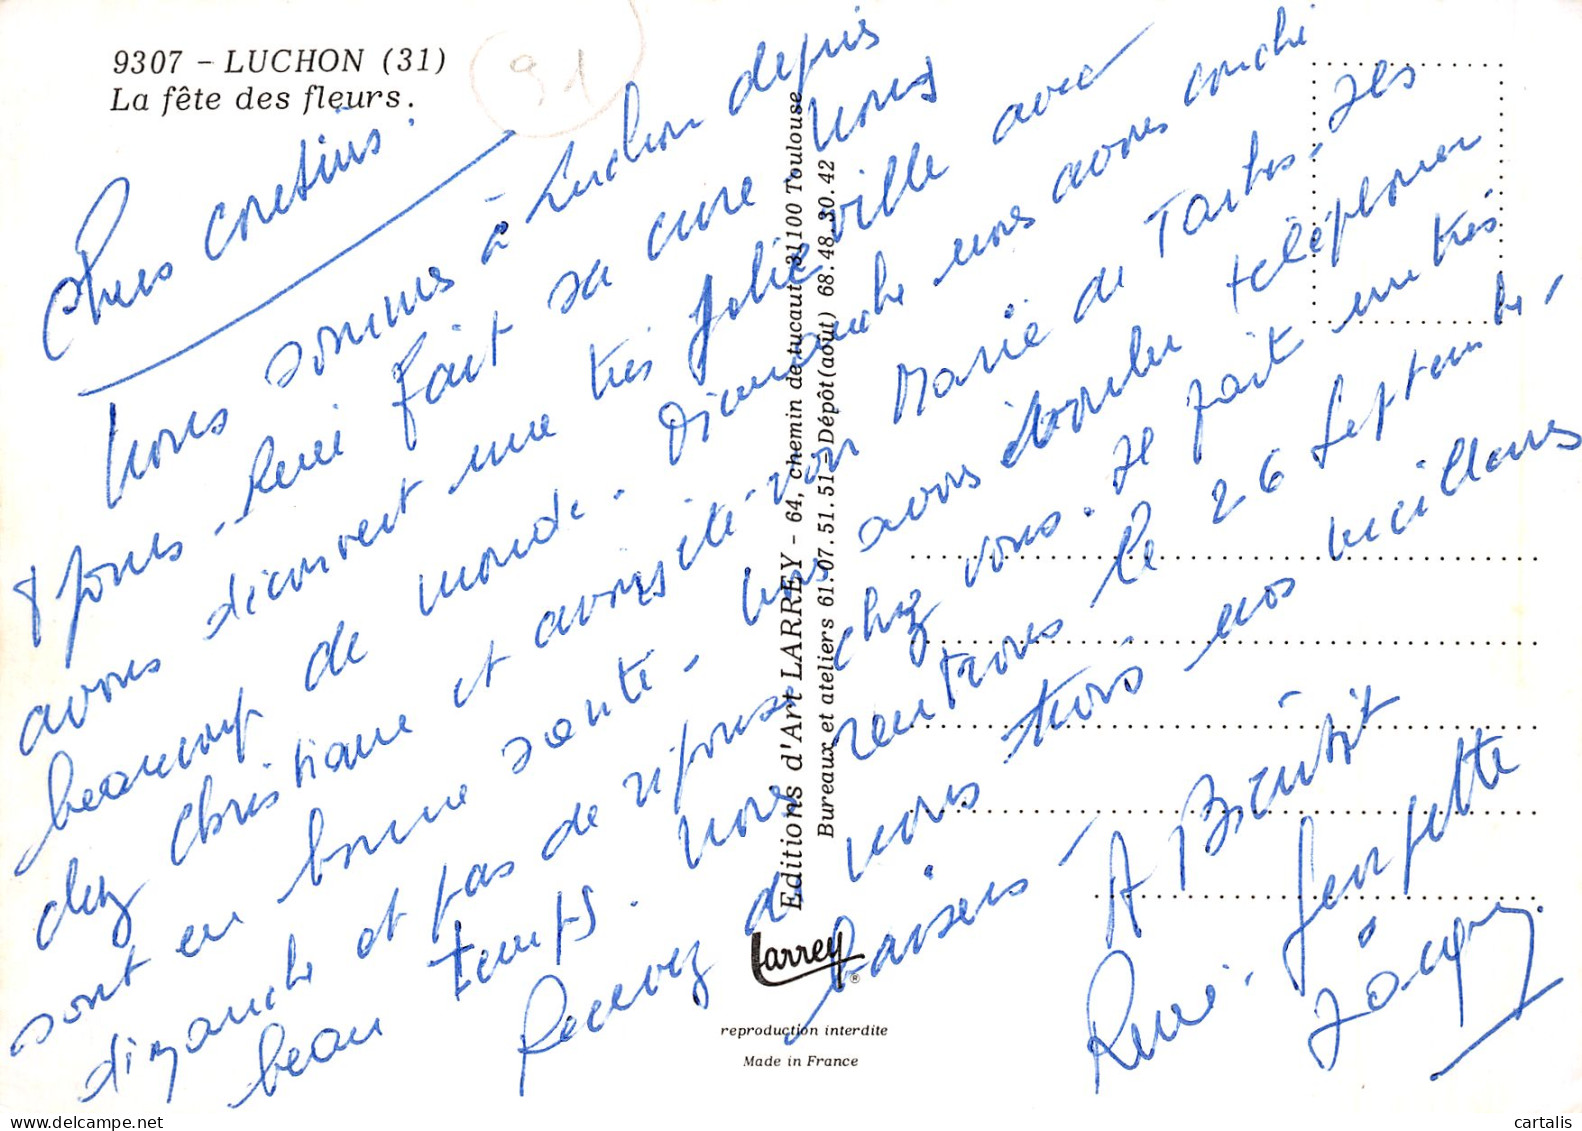 9307 - LUCHON (31)
La fête des fleurs.
91
Chers cousins :
Nous sommes à Luchon depuis
8 jours - René fait sa cure nous
avons découvert une très jolie ville avec
beaucoup de monde. Dimanche nous avons couché
chez Christiane et avons été voir Marie de Tarbes. Ils
sont en bonne santé - Nous avons voulu téléphoner
dimanche et pas de réponse chez vous. Il fait un très
beau temps. Nous rentrons le 26 Septembre,
Recevez de nous trois nos meilleurs
baisers - A Bientôt
René - Georgette
Jacques
Editions d'Art LARREY - 64, chemin de tucaut 31100 Toulouse
Bureaux et ateliers 61.07.51.51 - Dépôt (août) 68.48.30.42
Larrey ®
reproduction interdite
Made in France
cartalis